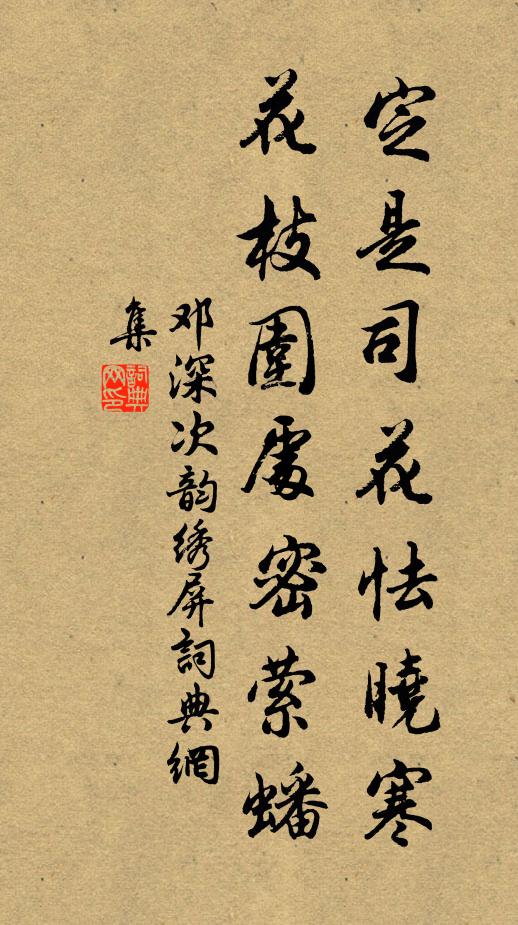 定是司花怯曉寒
花枝圍處密萦蟠
邓深次韵绣屏詞典網
集
詞典
网印